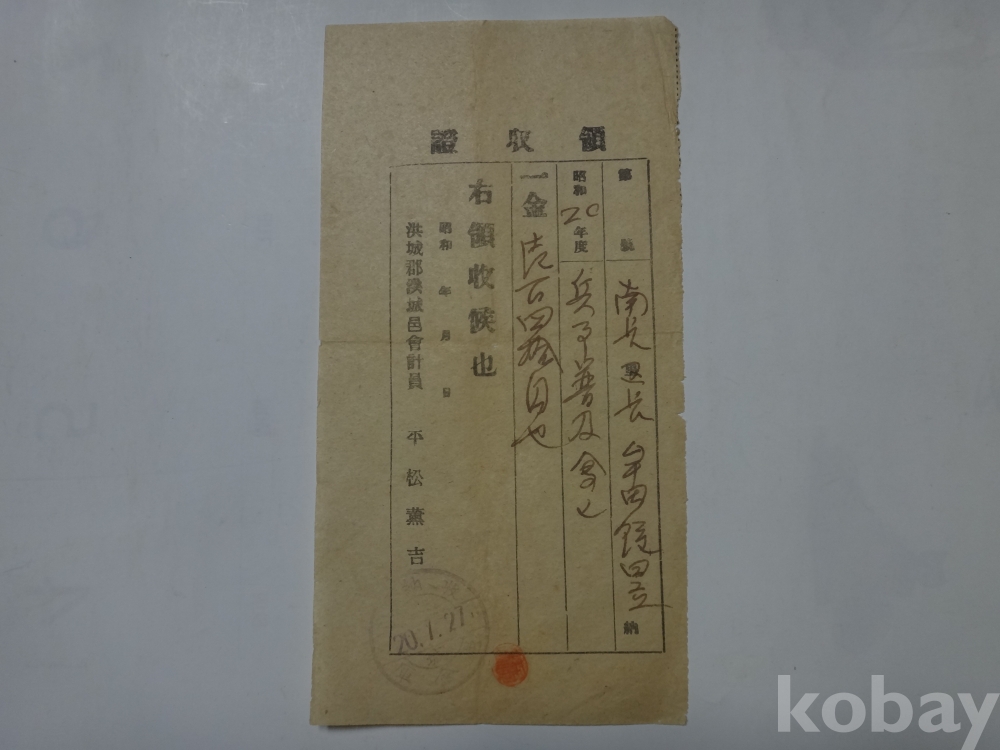 領收證
第 號
南長區長 牟田鏡四 納
昭和20年度 兵事普及會
一金 壱百四拾円也
右領收候也
昭和 年 月 日
洪城郡洪城邑會計員 平松薰吉
20.1.27
kobay